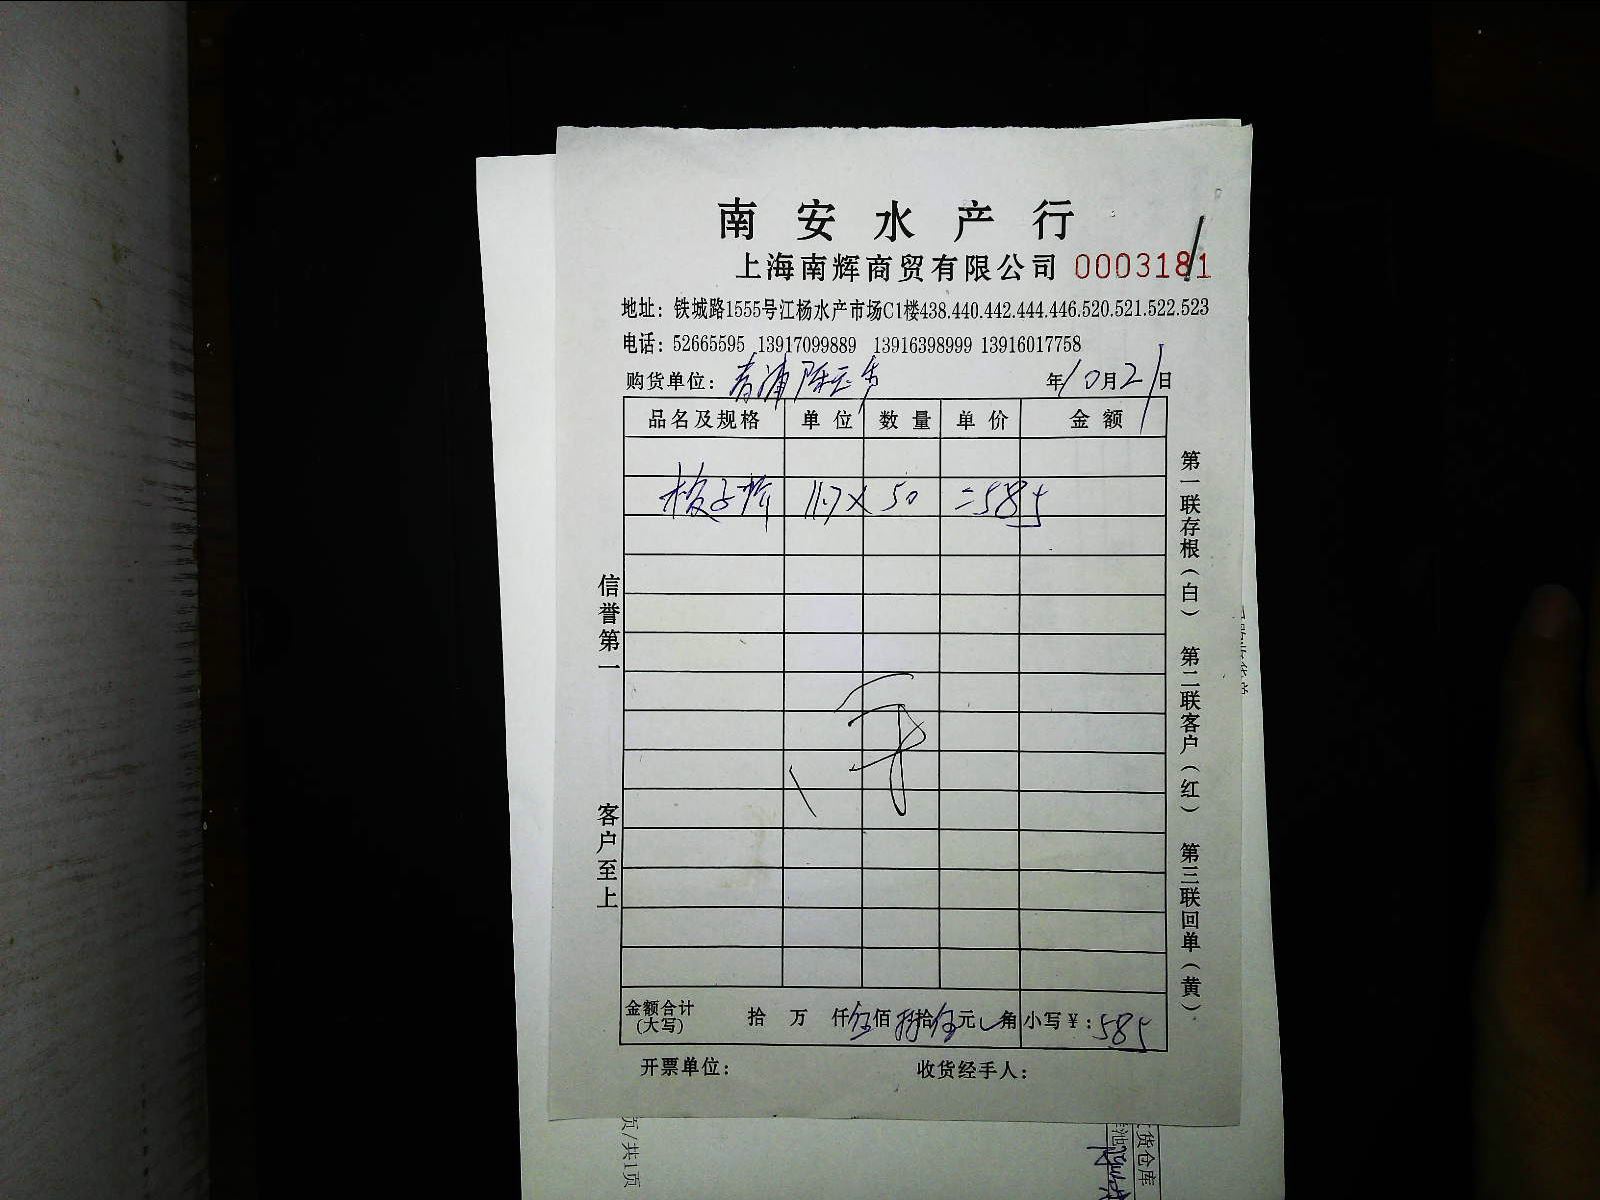 南安水产行
上海南辉商贸有限公司 0003181
地址：铁城路1555号江杨水产市场C1楼438.440.442.444.446.520.521.522.523
电话：52665595 13917099889 13916398999 13916017758
购货单位：青浦 年10月21日
品名及规格 单位 数量 单价 金额
板子 11.7× 50 =585
金额合计(大写) 拾 万 仟伍佰捌拾伍元 角 小写￥：585
开票单位： 收货经手人：
信誉第一 客户至上
第一联存根（白） 第二联客户（红） 第三联回单（黄）
页/共1页
货仓库